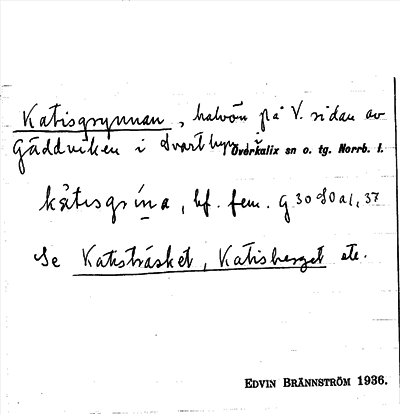 Katisgrynnan, halvön på V. sidan av
Gäddviken i Svartbyn Överkalix sn o. tg. Norrb. l.
kåtisgrína, bf. fem. g 30 S0 a1, 37
Se Katisträsket, Katisberget etc.
EDVIN BRÄNNSTRÖM 1936.